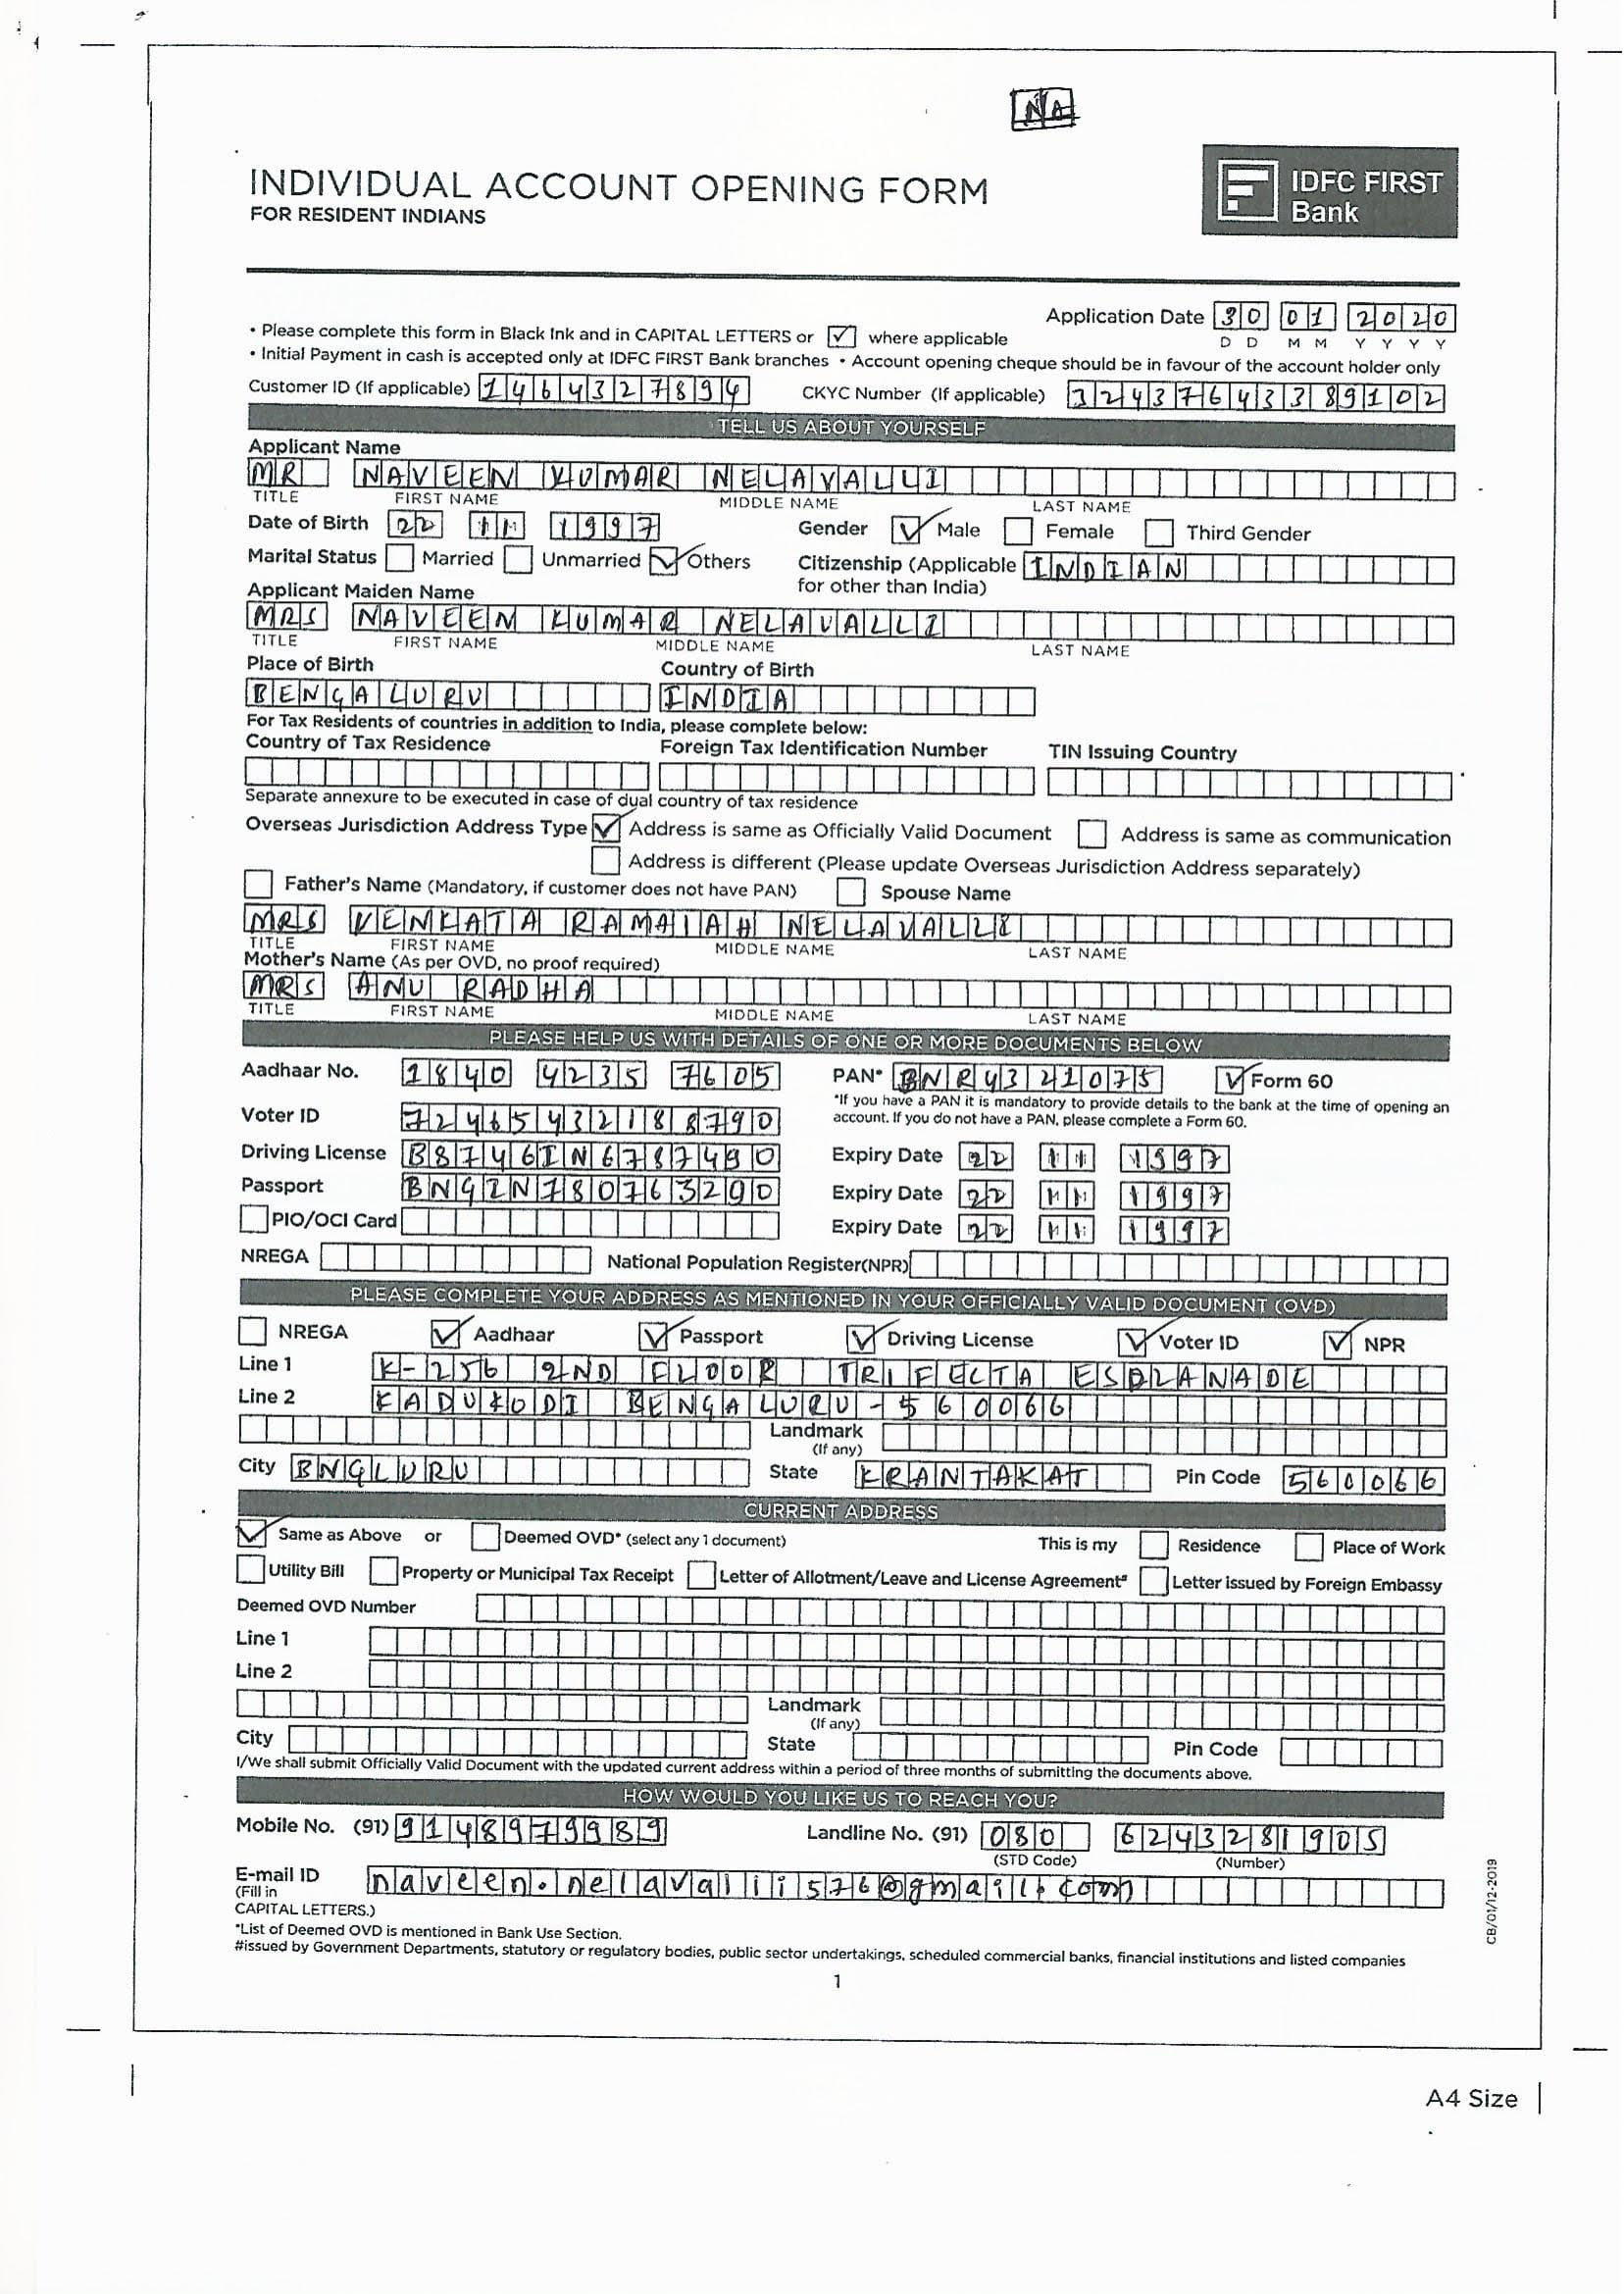 NA
INDIVIDUAL ACCOUNT OPENING FORM
FOR RESIDENT INDIANS
IDFC FIRST
Bank
Application Date 30 01 2020
D D M M Y Y Y Y
• Please complete this form in Black Ink and in CAPITAL LETTERS or ☑ where applicable
• Initial Payment in cash is accepted only at IDFC FIRST Bank branches • Account opening cheque should be in favour of the account holder only
Customer ID (If applicable) 1464327894 CKYC Number (If applicable) 32437643389102
TELL US ABOUT YOURSELF
Applicant Name
MR NAVEEN KUMAR NELAVALLI
TITLE FIRST NAME MIDDLE NAME LAST NAME
Date of Birth 22 11 1997 Gender ☑ Male ☐ Female ☐ Third Gender
Marital Status ☐ Married ☐ Unmarried ☑ Others Citizenship (Applicable for other than India) INDIAN
Applicant Maiden Name
MRS NAVEEN KUMAR NELAVALLI
TITLE FIRST NAME MIDDLE NAME LAST NAME
Place of Birth Country of Birth
BENGALURU INDIA
For Tax Residents of countries in addition to India, please complete below:
Country of Tax Residence Foreign Tax Identification Number TIN Issuing Country
Separate annexure to be executed in case of dual country of tax residence
Overseas Jurisdiction Address Type ☑ Address is same as Officially Valid Document ☐ Address is same as communication
☐ Address is different (Please update Overseas Jurisdiction Address separately)
☐ Father's Name (Mandatory, if customer does not have PAN) ☐ Spouse Name
MRS VENKATA RAMAIAH NELAVALLI
TITLE FIRST NAME MIDDLE NAME LAST NAME
Mother's Name (As per OVD, no proof required)
MRS ANU RADHA
TITLE FIRST NAME MIDDLE NAME LAST NAME
PLEASE HELP US WITH DETAILS OF ONE OR MORE DOCUMENTS BELOW
Aadhaar No. 1840 4235 7605 PAN* BNR4321075 ☑ Form 60
*If you have a PAN it is mandatory to provide details to the bank at the time of opening an
account. If you do not have a PAN, please complete a Form 60.
Voter ID 72465432188790
Driving License B8746IN6787490 Expiry Date 22 11 1997
Passport BNGIN780763290 Expiry Date 22 11 1997
☐ PIO/OCI Card Expiry Date 22 11 1997
NREGA National Population Register(NPR)
PLEASE COMPLETE YOUR ADDRESS AS MENTIONED IN YOUR OFFICIALLY VALID DOCUMENT (OVD)
☐ NREGA ☑ Aadhaar ☑ Passport ☑ Driving License ☑ Voter ID ☑ NPR
Line 1 K-256 2ND FLOOR TRIFECTA ESPLANADE
Line 2 KADUKODI BENGALURU-560066
Landmark
(If any)
City BNGLURU State KRANTAKAT Pin Code 560066
CURRENT ADDRESS
☑ Same as Above or ☐ Deemed OVD* (select any 1 document) This is my ☐ Residence ☐ Place of Work
☐ Utility Bill ☐ Property or Municipal Tax Receipt ☐ Letter of Allotment/Leave and License Agreement# ☐ Letter issued by Foreign Embassy
Deemed OVD Number
Line 1
Line 2
Landmark
(If any)
City State Pin Code
I/We shall submit Officially Valid Document with the updated current address within a period of three months of submitting the documents above.
HOW WOULD YOU LIKE US TO REACH YOU?
Mobile No. (91) 9148979989 Landline No. (91) 080 6243281905
(STD Code) (Number)
E-mail ID naveen.nelavalli576@gmail.com
(Fill in
CAPITAL LETTERS.)
*List of Deemed OVD is mentioned in Bank Use Section.
#issued by Government Departments, statutory or regulatory bodies, public sector undertakings, scheduled commercial banks, financial institutions and listed companies
CB/01/12-2019
1
A4 Size